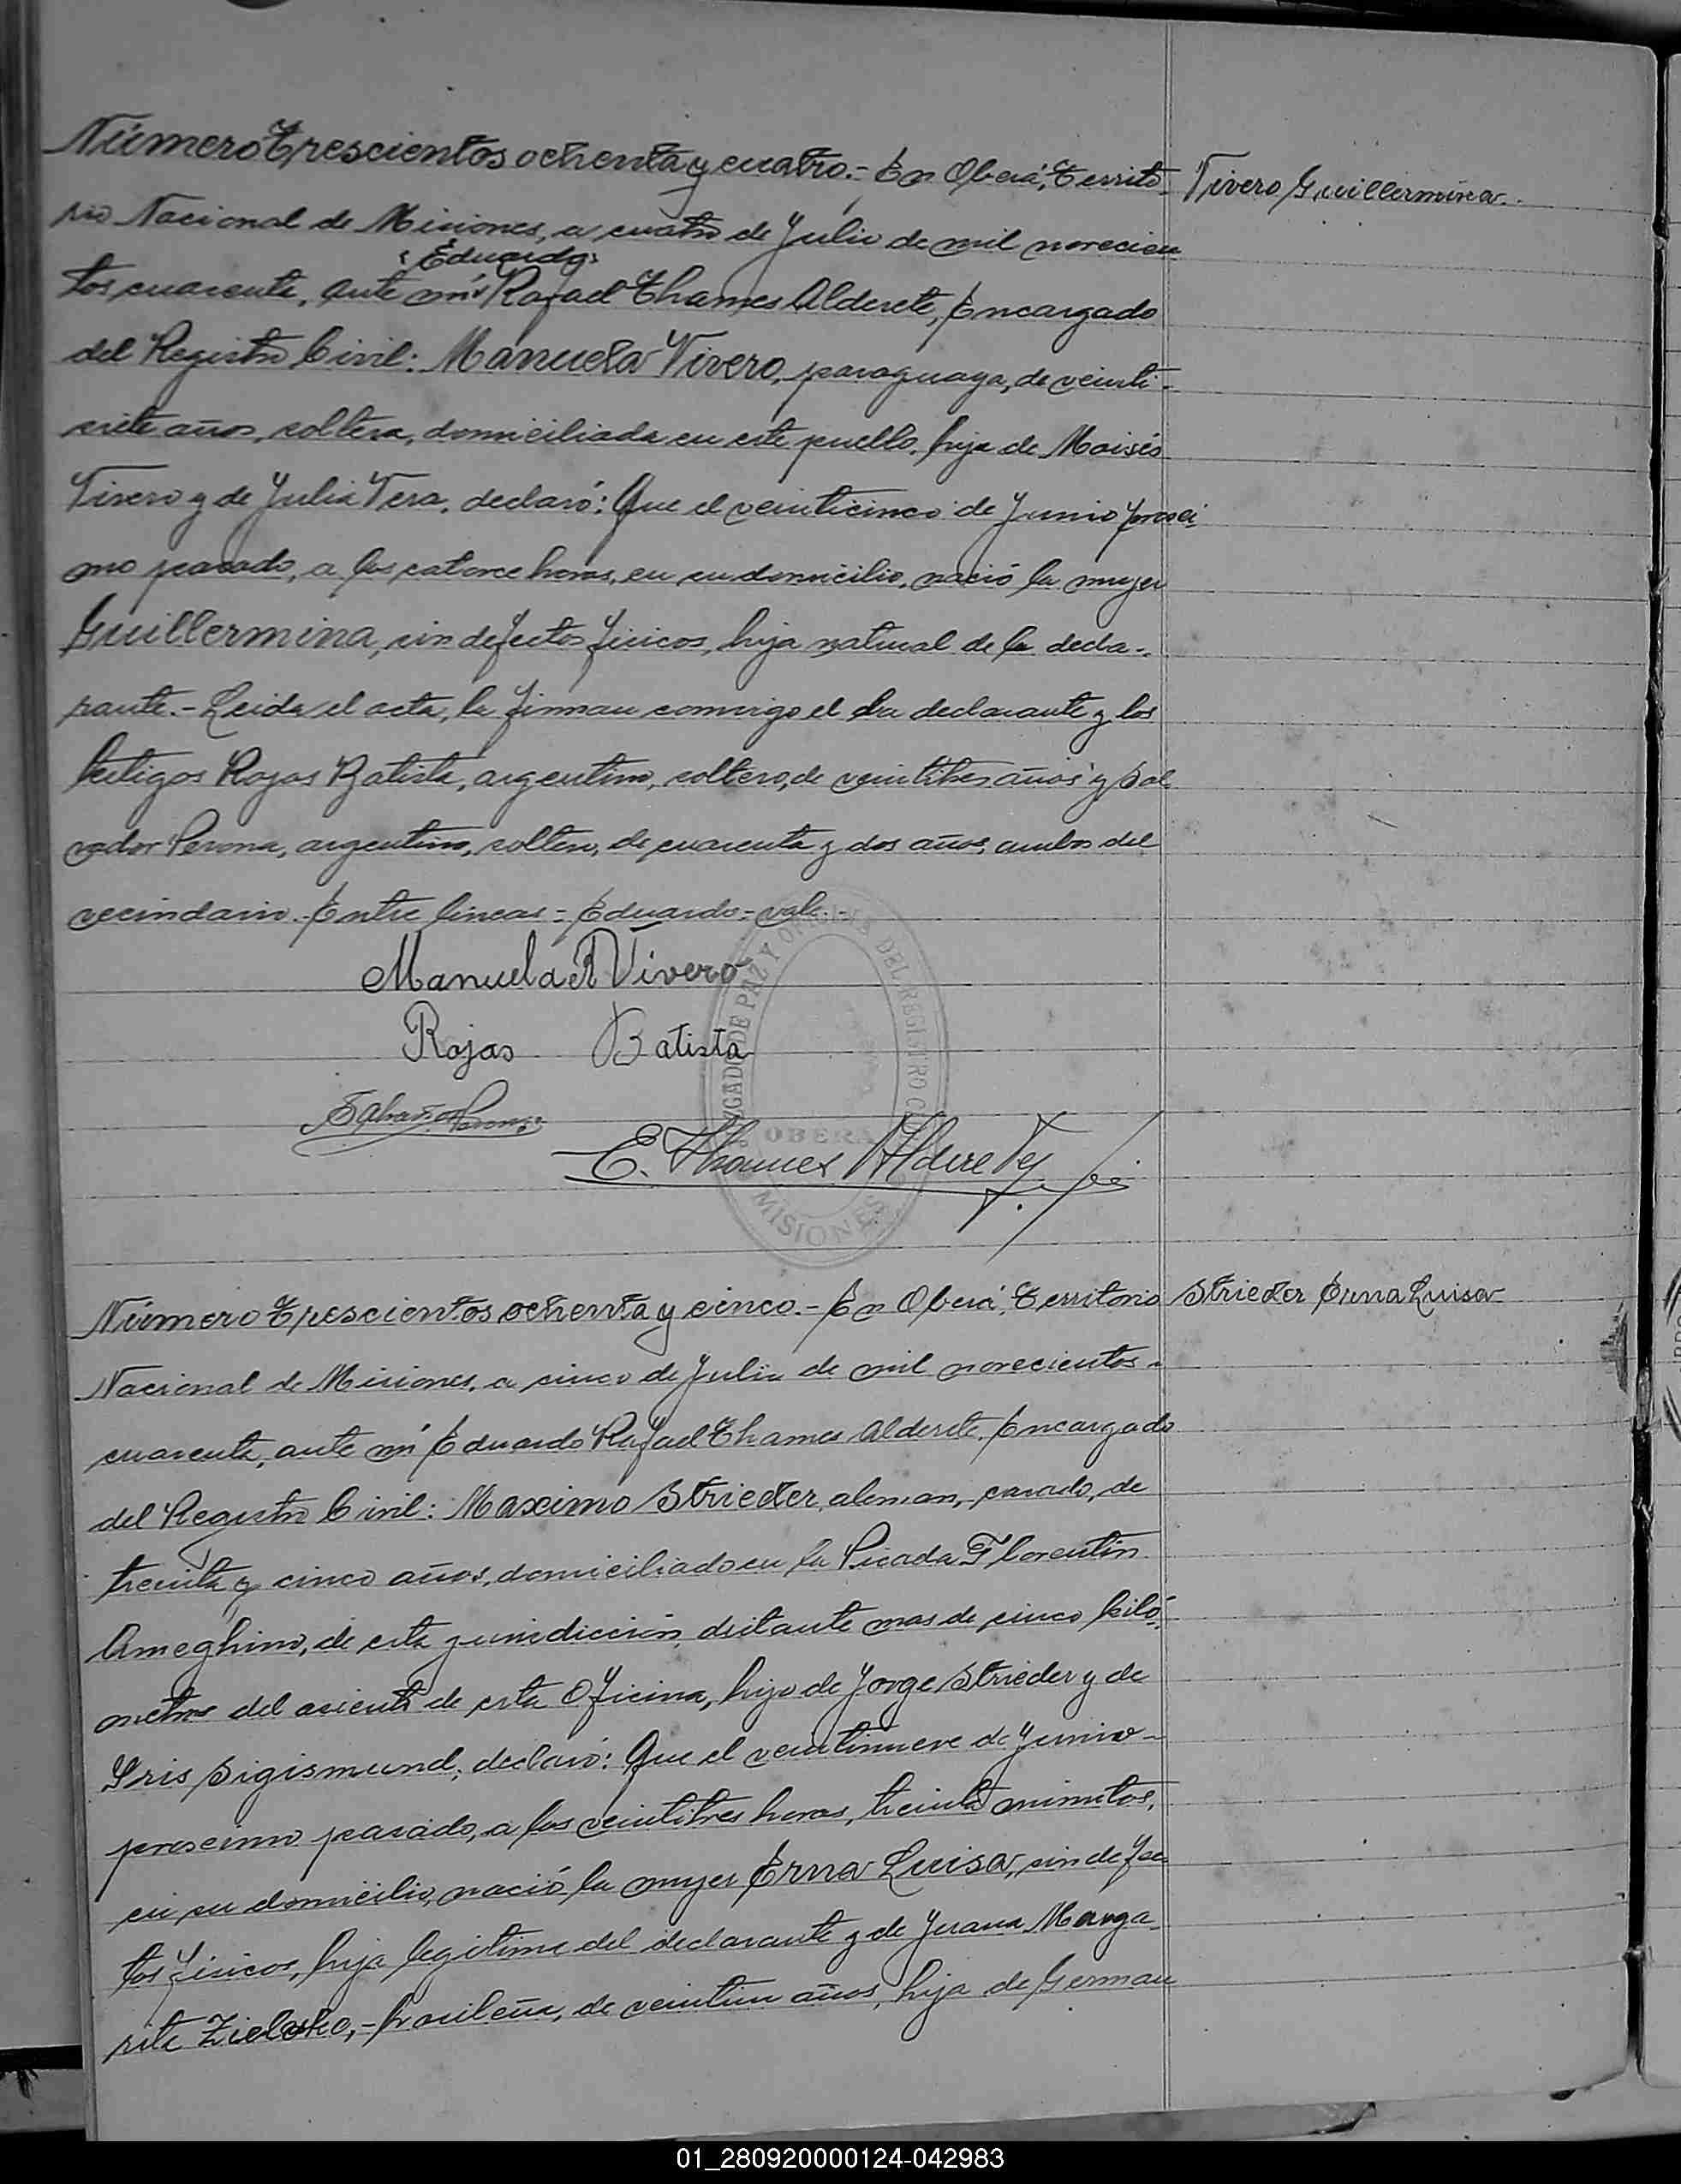 Número Trescientos ochenta y cuatro.- En Oberá, Territo-
Vivero Guillermina.
rio Nacional de Misiones, a cuatro de Julio de mil novecien
"Eduardo"
tos cuarenta, ante mí Rafael Thames Alderete, Encargado
del Registro Civil: Manuela Vivero, paraguaya, de veinti-
siete años, soltera, domiciliada en este pueblo, hija de Moisés
Vivero y de Julia Vera, declaró: Que el veinticinco de Junio procsi
mo pasado, a las catorce horas, en su domicilio, nació la mujer
Guillermina, sin defectos físicos, hija natural de la decla-
rante.- Leida el acta, la firman conmigo el la declarante y los
testigos Rojas Batista, argentino, soltero, de veintitres años y Sal
vador Perona, argentino, soltero, de cuarenta y dos años, ambos del
vecindario.- Entre lineas = Eduardo = vale.-
Manuela R Vivero
Rojas Batista
E. Thames Alderete
JUZGADO DE PAZ Y OFICINA DEL REGISTRO C
OBERA
MISIONES
Número Trescientos ochenta y cinco.- En Oberá, Territorio
Strieder Erna Luisa
Nacional de Misiones, a cinco de Julio de mil novecientos-
cuarenta, ante mí Eduardo Rafael Thames Alderete, Encargado
del Registro Civil: Maximo Strieder, aleman, casado, de
treinta y cinco años, domiciliado en la Picada Florentin
Ameghino, de esta jurisdicción, distante mas de cinco kiló-
metros del asiento de esta Oficina, hijo de Jorge Strieder y de
Iris Sigismund, declaró: Que el veintinueve de Junio-
procsimo pasado, a las veintitres horas, treinta minutos,
en su domicilio, nació la mujer Erna Luisa, sin defec
tos físicos, hija legitima del declarante y de Juana Marga-
rita Zielasko,- brasileña, de veintiun años, hija de German
01_280920000124-042983